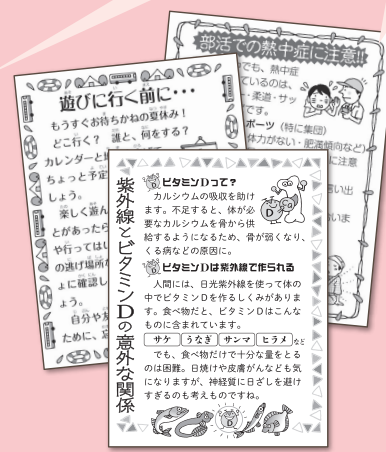 部活での熱中症に注意!!
でも、熱中症
ているのは、
・柔道・サッ
です。
ポーツ（特に集団）
体力がない・肥満傾向など）
に注意
い出
いま
遊びに行く前に・・・
もうすぐお待ちかねの夏休み！
どこ行く？　誰と、何をする？
カレンダーと
ちょっと予定
しょう。
楽しく遊ん
とがあったら
や行ってはい
の逃げ場所な
ょに確認し
ょう。
自分や
ために、
紫外線とビタミンDの意外な関係
ビタミンDって？
カルシウムの吸収を助け
ます。不足すると、体が必
要なカルシウムを骨から供
給するようになるため、骨が弱くなり、
くる病などの原因に。
ビタミンDは紫外線で作られる
人間には、日光紫外線を使って体の
中でビタミンDを作るしくみがありま
す。食べ物だと、ビタミンDはこんな
ものに含まれています。
サケ　うなぎ　サンマ　ヒラメ　など
でも、食べ物だけで十分な量をとる
のは困難。日焼けや皮膚がんなども気
になりますが、神経質に日ざしを避け
すぎるのも考えものですね。